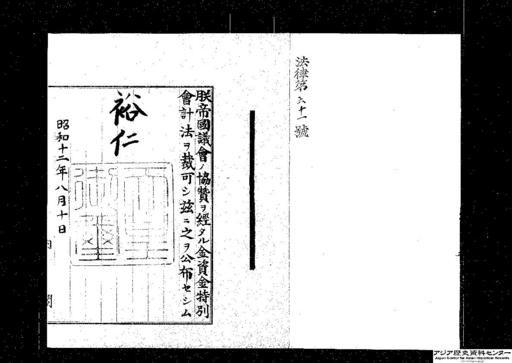 法律第六十一號
朕帝國議會ノ協贊ヲ經タル金資金特別
會計法ヲ裁可シ玆ニ之ヲ公布セシム
裕仁
天皇御璽
昭和十二年八月十日
内閣
アジア歴史資料センター
Japan Center for Asian Historical Records